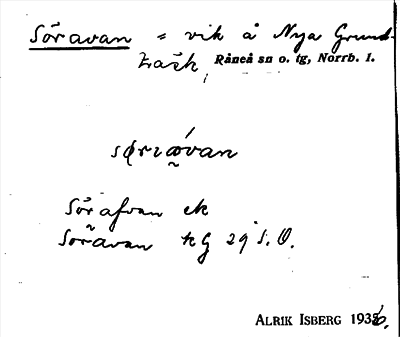 Söravan = vik å Nya Grund-
träsk, Råneå sn o. tg, Norrb. l.
Sörafvan ek
Soravan kg 29 S.O.
ALRIK ISBERG 1936.